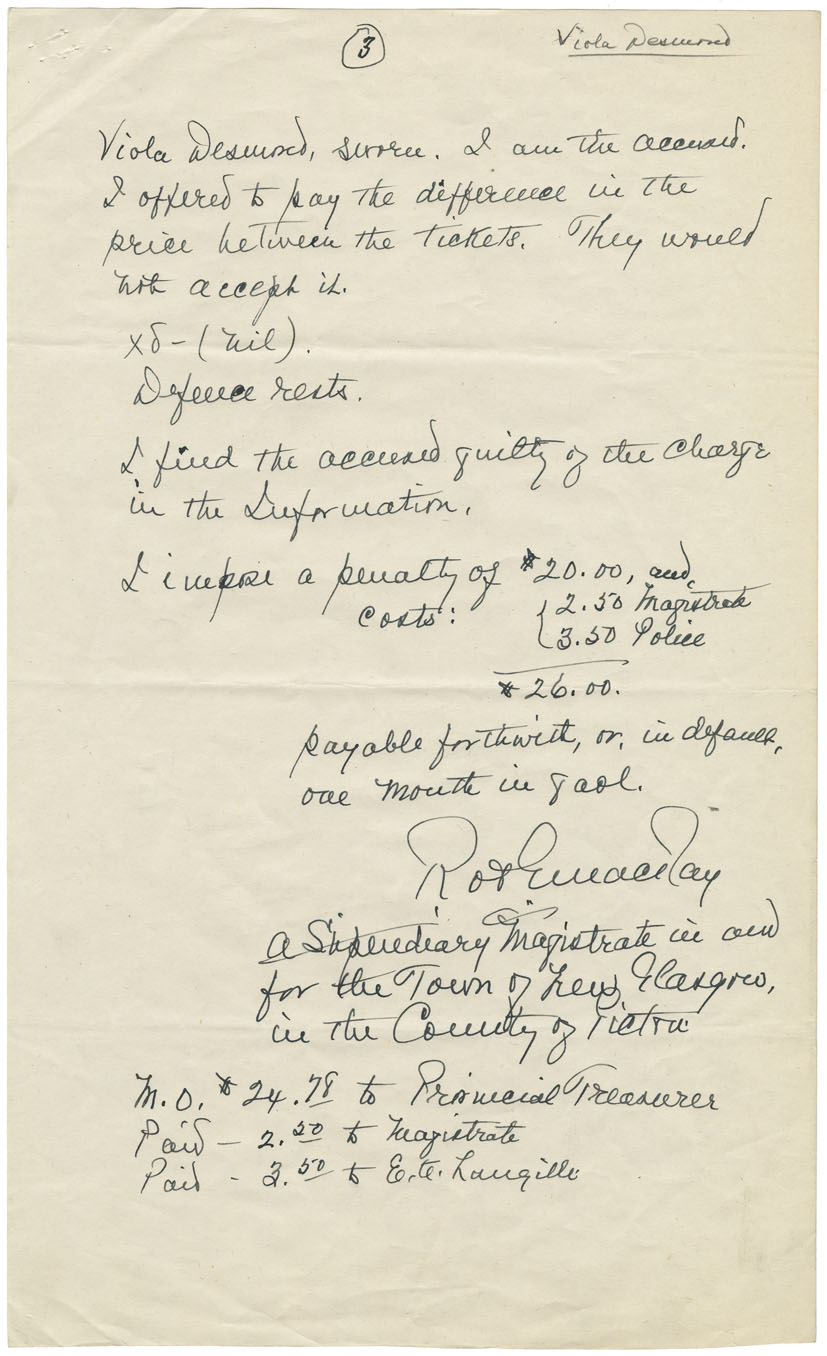 3
Viola Desmond
Viola Desmond, sworn. I am the accused.
I offered to pay the difference in the
price between the tickets. They would
not accept it.
xδ - (nil).
Defence rests.
I find the accused guilty of the charge
in the Information.
I impose a penalty of $20.00, and
costs: 2.50 Magistrate
3.50 Police
$26.00.
payable forthwith, or, in default,
one month in gaol.
Rod G MacKay
A Stipendiary Magistrate in and
for the Town of New Glasgow,
in the County of Pictou
M.O. $24.78 to Provincial Treasurer
Paid - 2.50 to Magistrate
Paid - 3.50 to Langille